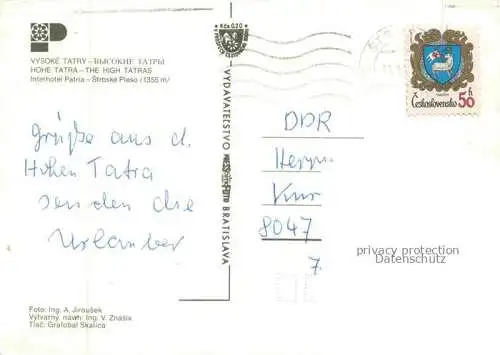 VYSOKÉ TATRY – ВЫСОКИЕ ТАТРЫ
HOHE TATRA – THE HIGH TATRAS
Interhotel Patria – Štrbské Pleso /1355 m/
Kčs 0,20
VYDAVATEĽSTVO
BRATISLAVA
Československo 50 h
Grüße aus d.
Hohen Tatra
senden die
Urlauber
DDR
Herrn
8047
7.
privacy protection
Datenschutz
Foto: Ing. A. Jiroušek
Výtvarný návrh: Ing. V. Znášik
Tlač: Grafobal Skalica